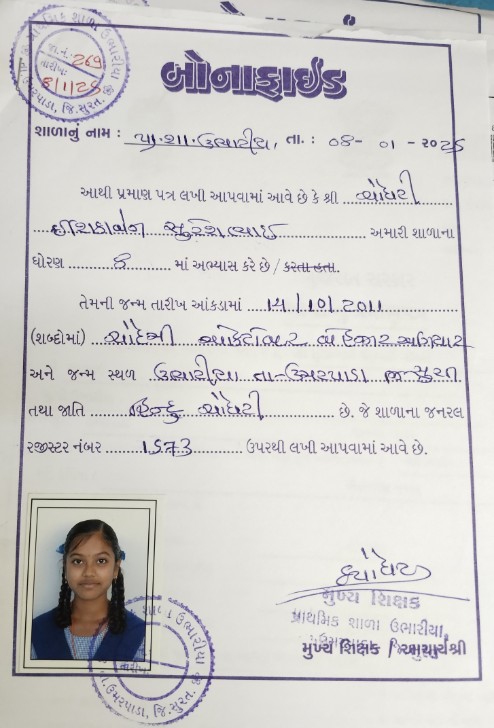 પ્રાથમિક શાળા ઉભારીયા
જા.નં.: 269
તારીખ: 8/1/25
ઉમરપાડા, જિ.સુરત.
બોનાફાઈડ
શાળાનું નામ : પ્રા.શા. ઉભારીયા, તા. : 08- 01 - ૨૦૨૫
આથી પ્રમાણ પત્ર લખી આપવામાં આવે છે કે શ્રી ચૌધરી
સુરેશભાઈ અમારી શાળાના
ધોરણ 8 માં અભ્યાસ કરે છે / કરતા હતા.
તેમની જન્મ તારીખ આંકડામાં 14/10/2011
(શબ્દોમાં) ચૌદમી ઓક્ટોમ્બર બે હજાર અગિયાર
અને જન્મ સ્થળ ઉભારીયા તા-ઉમરપાડા જી-સુરત
તથા જાતિ હિન્દુ ચૌધરી છે. જે શાળાના જનરલ
રજીસ્ટર નંબર 1573 ઉપરથી લખી આપવામાં આવે છે.
મુખ્ય શિક્ષક
પ્રાથમિક શાળા ઉભારીયા,
મુખ્ય શિક્ષક / આચાર્યશ્રી
ઉભારીયા
તારીખ
ઉમરપાડા, જિ.સુરત.